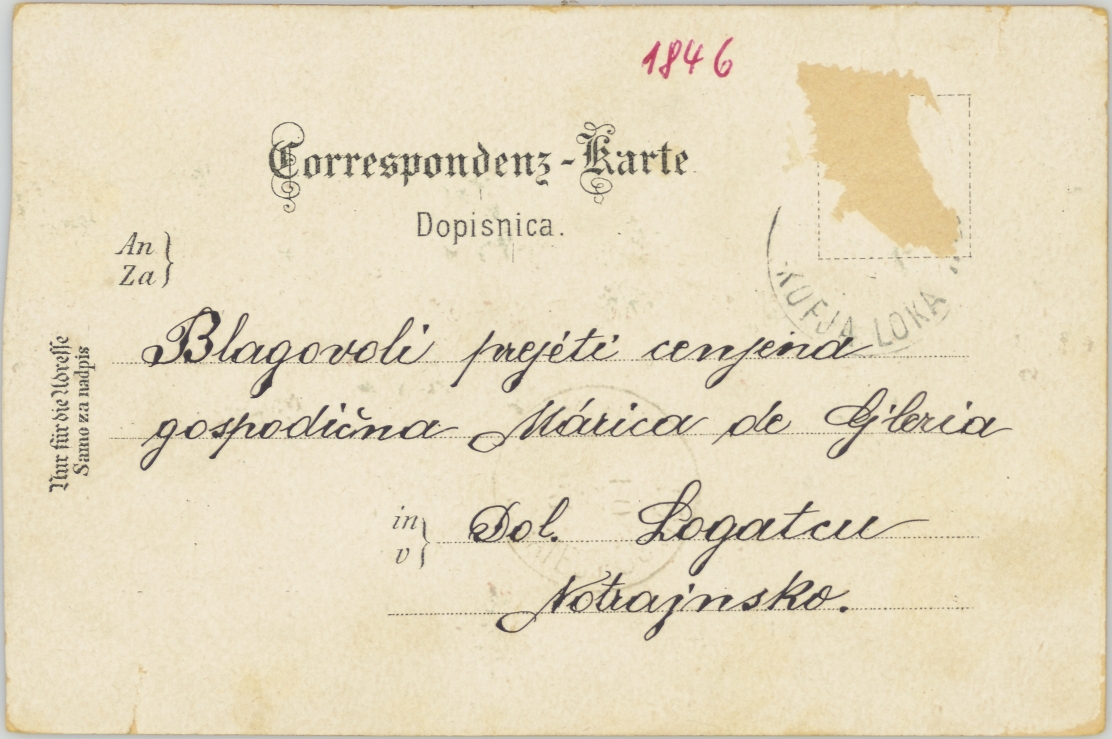 1846
Correspondenz-Karte
Dopisnica.
An
Za
Nur für die Adresse
Samo za nadpis
KOFJA LOKA
Blagovoli prejéti cenjena
gospodična Márica de Gleria
in
v
Dol. Logatcu
Notrajnsko.